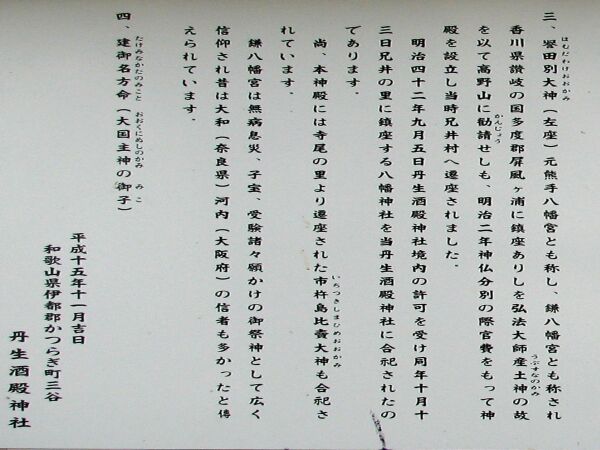 三、誉田別大神（左座）元熊手八幡宮とも称し、鎌八幡宮とも称され
ほむだわけおおかみ
香川県讃岐の国多度郡屏風ヶ浦に鎮座ありしを弘法大師産土神の故
うぶすなのかみ
を以て高野山に勧請せしも、明治二年神仏分別の際官費をもって神
かんじょう
殿を設立し当時兄井村へ遷座されました。
明治四十二年九月五日丹生酒殿神社境内の許可を受け同年十月十
三日兄井の里に鎮座する八幡神社を当丹生酒殿神社に合祀されたの
であります。
尚、本神殿には寺尾の里より遷座された市杵島比賣大神も合祀さ
いちつきしまひめおおかみ
れています。
鎌八幡宮は無病息災、子宝、受験諸々願かけの御祭神として広く
信仰され昔は大和（奈良県）河内（大阪府）の信者も多かったと傳
えられています。
四、建御名方命（大国主神の御子）
たけみなかたのみこと おおくにぬしのかみ みこ
平成十五年十一月吉日
和歌山県伊都郡かつらぎ町三谷
丹生酒殿神社